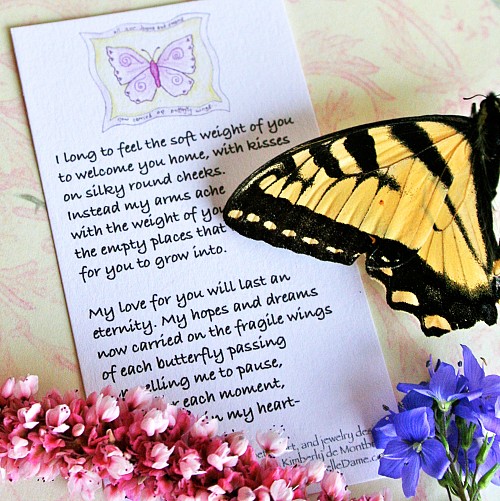 all our hopes and dreams
now carried on butterfly wings
I long to feel the soft weight of you
to welcome you home, with kisses
on silky round cheeks.
Instead my arms ache
with the weight of you
the empty places that
for you to grow into.
My love for you will last an
eternity. My hopes and dreams
now carried on the fragile wings
of each butterfly passing
telling me to pause,
each moment,
in my heart-
and jewelry
Kimberly de Montb
elleDame.c